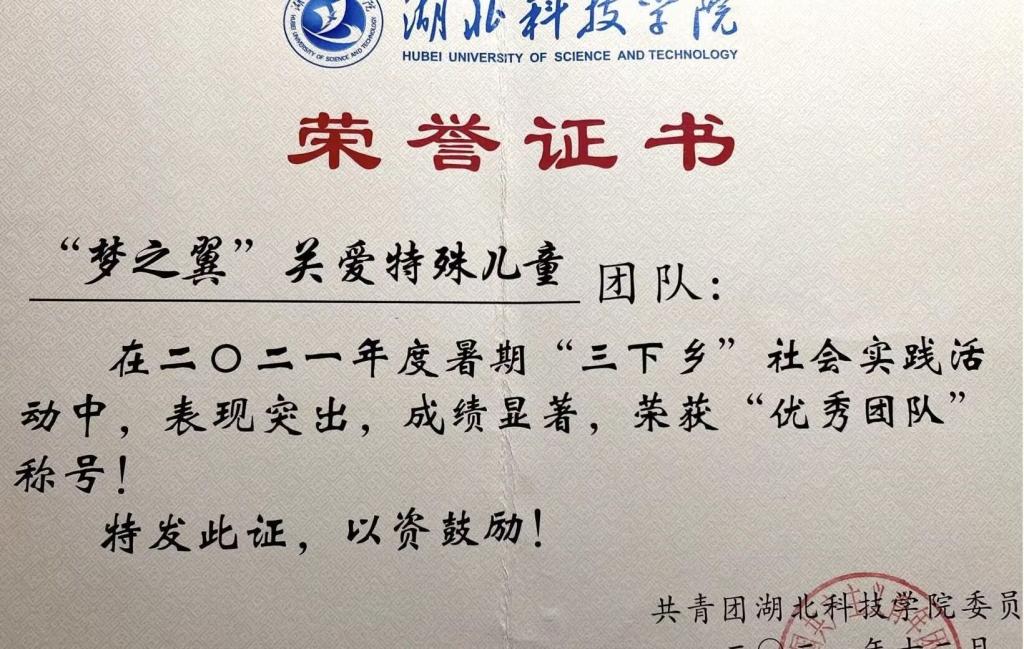 湖北科技学院
HUBEI UNIVERSITY OF SCIENCE AND TECHNOLOGY
HUBEI UNIVERSITY OF SCIENCE AND TECHNOLOGY
荣誉证书
“梦之翼”关爱特殊儿童团队:
在二〇二一年度暑期“三下乡”社会实践活
动中，表现突出，成绩显著，荣获“优秀团队”
称号！
特发此证，以资鼓励！
共青团湖北科技学院委员
二〇二一年十二月